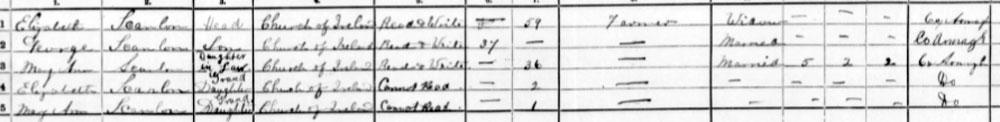 1 Elizabeth Scanlon Head Church of Ireland Read & Write — 59 Farmer Widow — — — Co Armagh
2 George Scanlon Son Church of Ireland Read & Write 37 — — Married Co Armagh
3 Mary Ann Scanlon Daughter in Law Church of Ireland Read & Write — 36 — Married 5 2 2 Co Armagh
4 Elizabeth Scanlon Grand Daughter Church of Ireland Cannot Read — 2 — — — — — Do
5 Mary Ann Scanlon Grand Daughter Church of Ireland Cannot Read — 1 — — — — Do